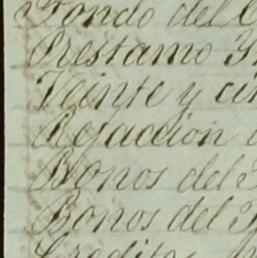 Fondo del
Prestamo
Veinte y
Refaccion
Bonos del
Bonos del
Creditos